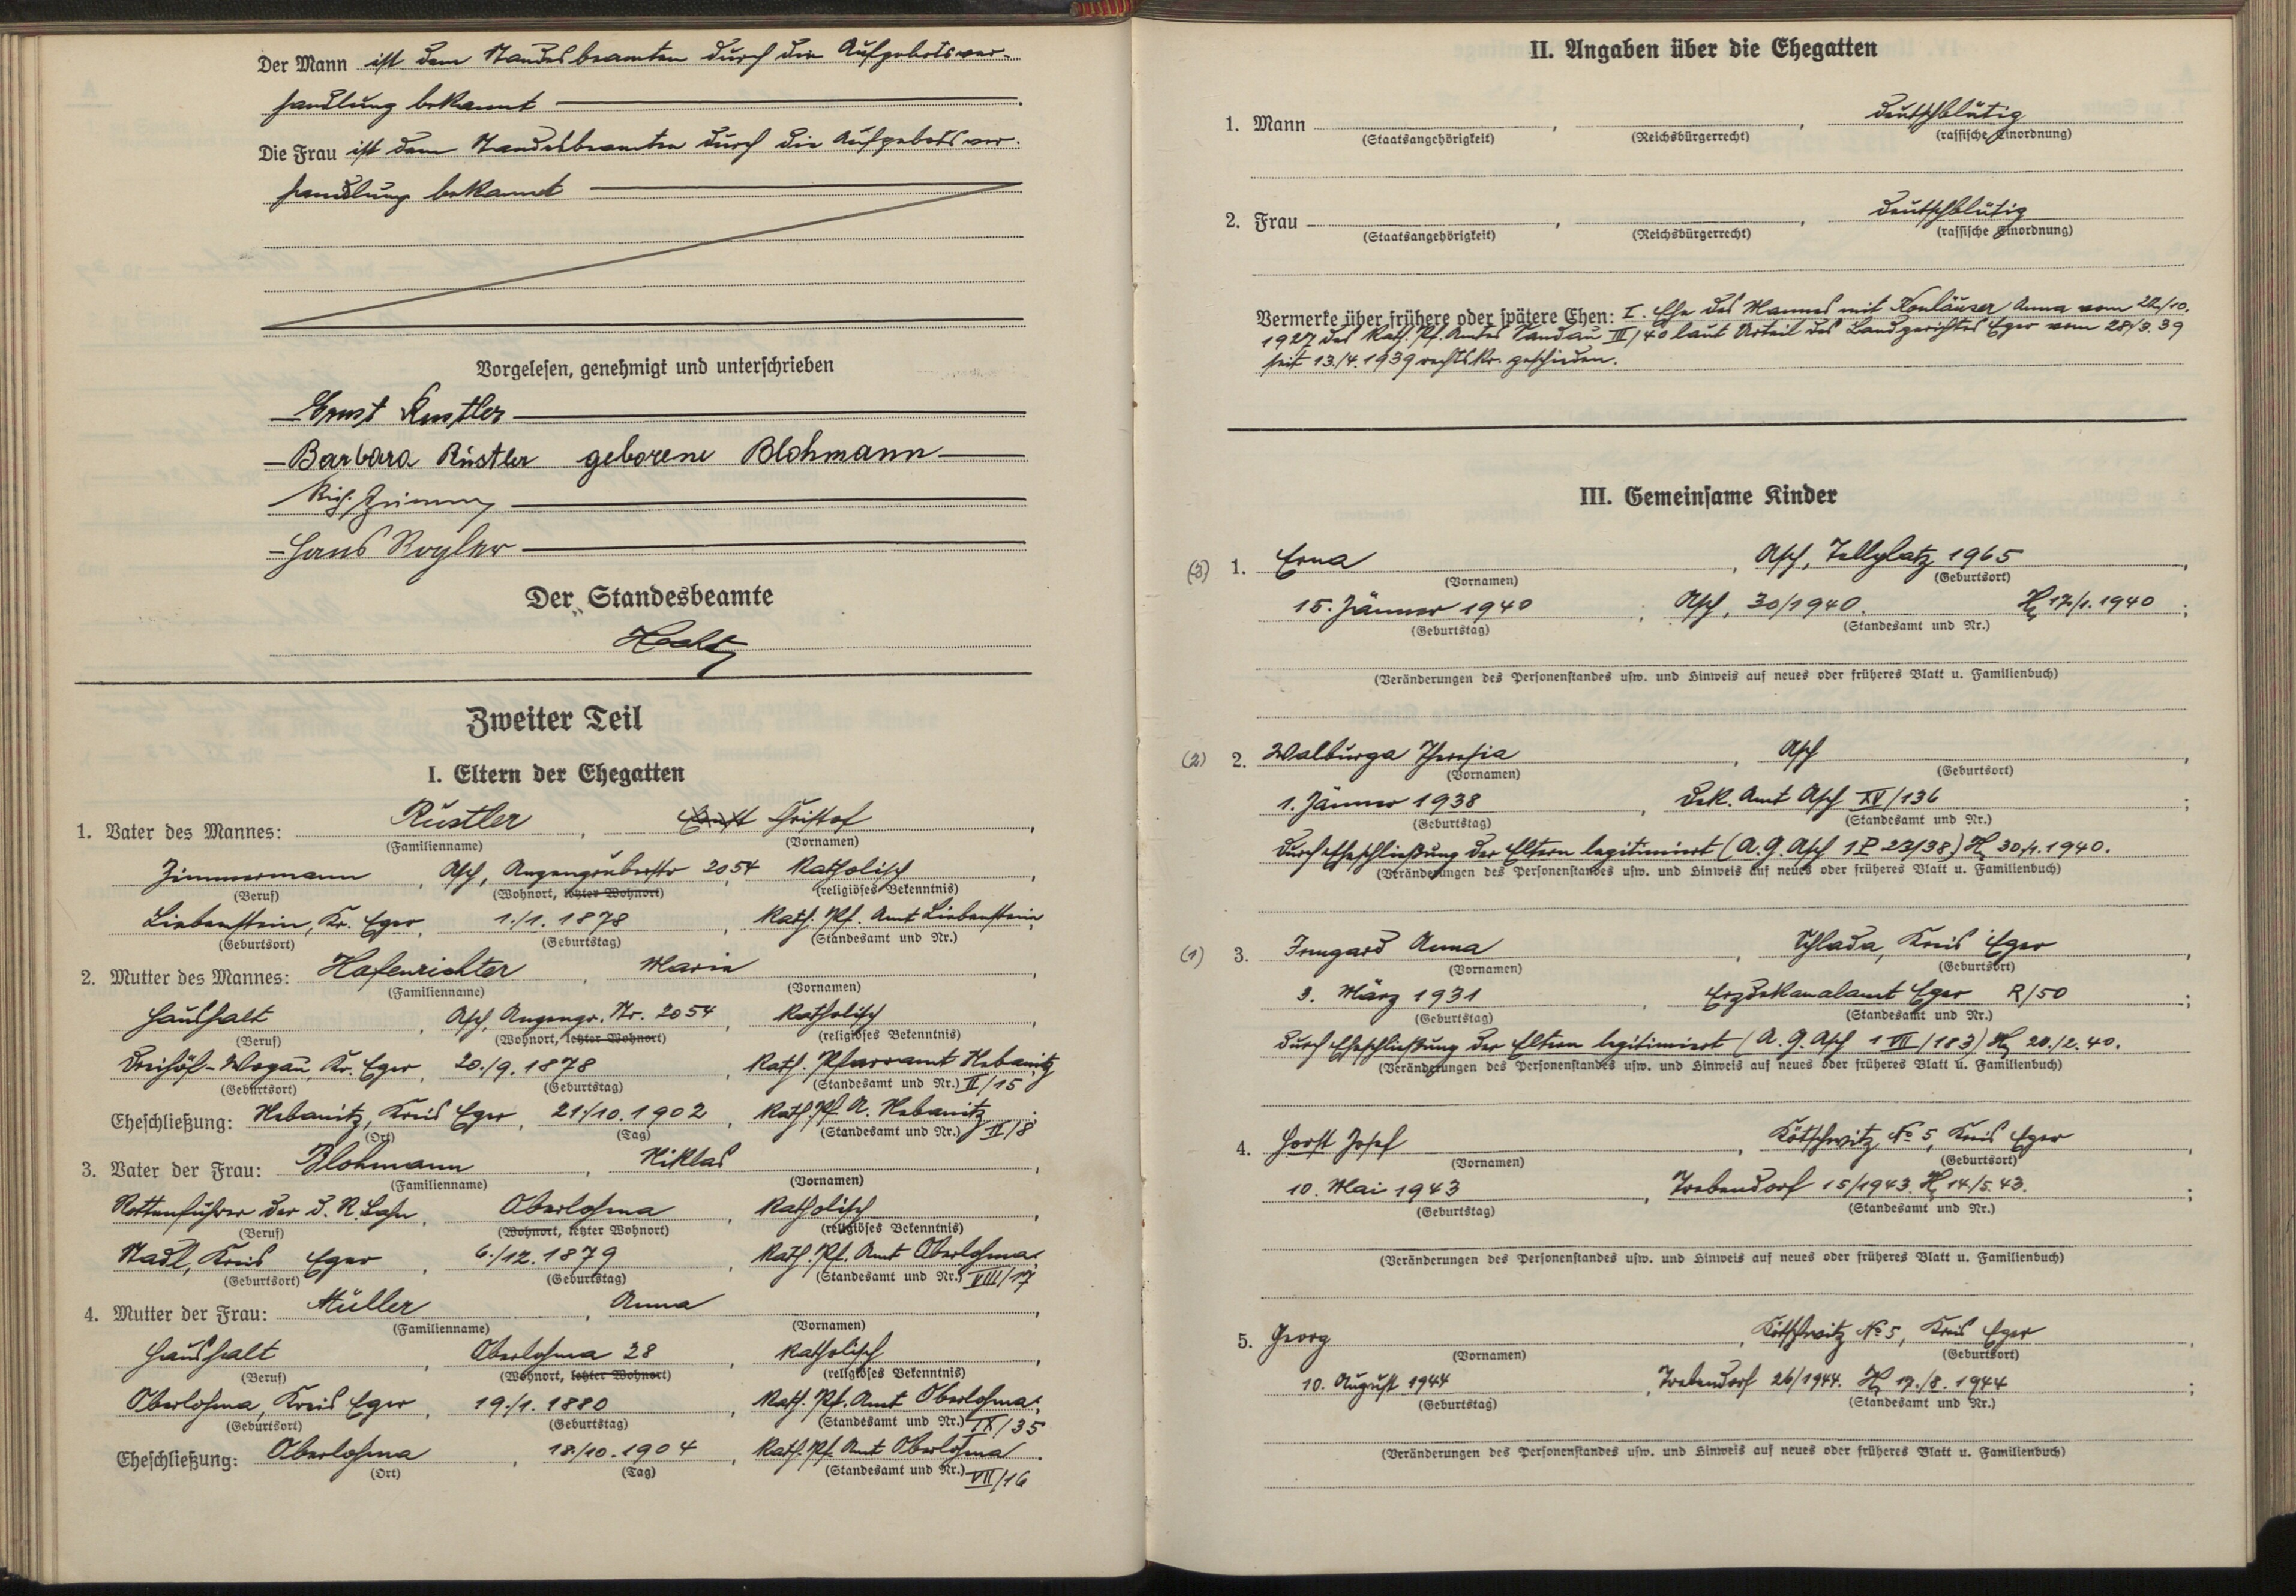 Der Mann ist dem Standesbeamten durch die Aufgebotsver-
handlung bekannt
Die Frau ist dem Standesbeamten durch die Aufgebotsver-
handlung bekannt
Vorgelesen, genehmigt und unterschrieben
Ernst Rustler
Barbara Rüstler geborene Blohmann
Hans Rogler
Der Standesbeamte
Zweiter Teil
I. Eltern der Ehegatten
1. Vater des Mannes: Rüstler, Ernst Christof
(Familienname) (Vornamen)
Zimmermann, Asch, Anzengruberstr 2054, katholisch,
(Beruf) (Wohnort, letzter Wohnort) (religiöses Bekenntnis)
Liebenstein, Kr. Eger, 1./1. 1878, Kath. Pf. Amt Liebenstein
(Geburtsort) (Geburtstag) (Standesamt und Nr.)
2. Mutter des Mannes: Hafenrichter, Maria,
(Familienname) (Vornamen)
Haushalt, Asch, Anzengr. Str. 2054, katholisch,
(Beruf) (Wohnort, letzter Wohnort) (religiöses Bekenntnis)
Dreihöf-Wogau, Kr. Eger, 20./9. 1878, Kath. Pfarramt Nebanitz
(Geburtsort) (Geburtstag) (Standesamt und Nr.) II/15
Eheschließung: Nebanitz, Kreis Eger, 21./10. 1902, Kath. Pf. A. Nebanitz
(Ort) (Tag) (Standesamt und Nr.) II/8
3. Vater der Frau: Blohmann, Niklas,
(Familienname) (Vornamen)
Rottenführer der d. R. Bahn, Oberlohma, katholisch,
(Beruf) (Wohnort, letzter Wohnort) (religiöses Bekenntnis)
Stadl, Kreis Eger, 6./12. 1879, Kath. Pf. Amt Oberlohma
(Geburtsort) (Geburtstag) (Standesamt und Nr.) VIII/17
4. Mutter der Frau: Müller, Anna,
(Familienname) (Vornamen)
Haushalt, Oberlohma 28, katholisch,
(Beruf) (Wohnort, letzter Wohnort) (religiöses Bekenntnis)
Oberlohma, Kreis Eger, 19./1. 1880, Kath. Pf. Amt Oberlohma
(Geburtsort) (Geburtstag) (Standesamt und Nr.) IX/35
Eheschließung: Oberlohma, 18/10. 1904, Kath. Pf. Amt Oberlohma.
(Ort) (Tag) (Standesamt und Nr.) VII/16
II. Angaben über die Ehegatten
1. Mann, , deutschblütig
(Staatsangehörigkeit) (Reichsbürgerrecht) (rassische Einordnung)
2. Frau, , deutschblütig
(Staatsangehörigkeit) (Reichsbürgerrecht) (rassische Einordnung)
Vermerke über frühere oder spätere Ehen: I. Ehe des Mannes mit Anna vom 22./10.
1927 des Kath. Pf. Amtes Sandau III/40 laut Urteil des Landgerichtes Eger vom 28/3. 39
seit 13./4. 1939 rechtskr. geschieden.
III. Gemeinsame Kinder
(3) 1. Erna, Asch, Tellplatz 1965,
(Vornamen) (Geburtsort)
15. Jänner 1940; Asch, 30/1940. 17./1. 1940;
(Geburtstag) (Standesamt und Nr.)
(Veränderungen des Personenstandes usw. und Hinweis auf neues oder früheres Blatt u. Familienbuch)
(2) 2. Walburga Theresia, Asch,
(Vornamen) (Geburtsort)
1. Jänner 1938, Dek. Amt Asch XV/136;
(Geburtstag) (Standesamt und Nr.)
durch Eheschließung der Eltern legitimiert (A. G. Asch 1 P 23/38) 30./4. 1940.
(Veränderungen des Personenstandes usw. und Hinweis auf neues oder früheres Blatt u. Familienbuch)
(1) 3. Irmgard Anna, Schlada, Kreis Eger,
(Vornamen) (Geburtsort)
3. März 1931, Erzdekanalamt Eger R/50;
(Geburtstag) (Standesamt und Nr.)
durch Eheschließung der Eltern legitimiert (A. G. Asch 1 VIII/183) 20./2. 40.
(Veränderungen des Personenstandes usw. und Hinweis auf neues oder früheres Blatt u. Familienbuch)
4. Horst Josef, Kötschwitz No 5, Kreis Eger,
(Vornamen) (Geburtsort)
10. Mai 1943, Trebendorf 15/1943. 14/5. 43.;
(Geburtstag) (Standesamt und Nr.)
(Veränderungen des Personenstandes usw. und Hinweis auf neues oder früheres Blatt u. Familienbuch)
5. Georg, Kötschwitz No 5, Kreis Eger,
(Vornamen) (Geburtsort)
10. August 1944, Trebendorf 26/1944. 17./8. 1944;
(Geburtstag) (Standesamt und Nr.)
(Veränderungen des Personenstandes usw. und Hinweis auf neues oder früheres Blatt u. Familienbuch)